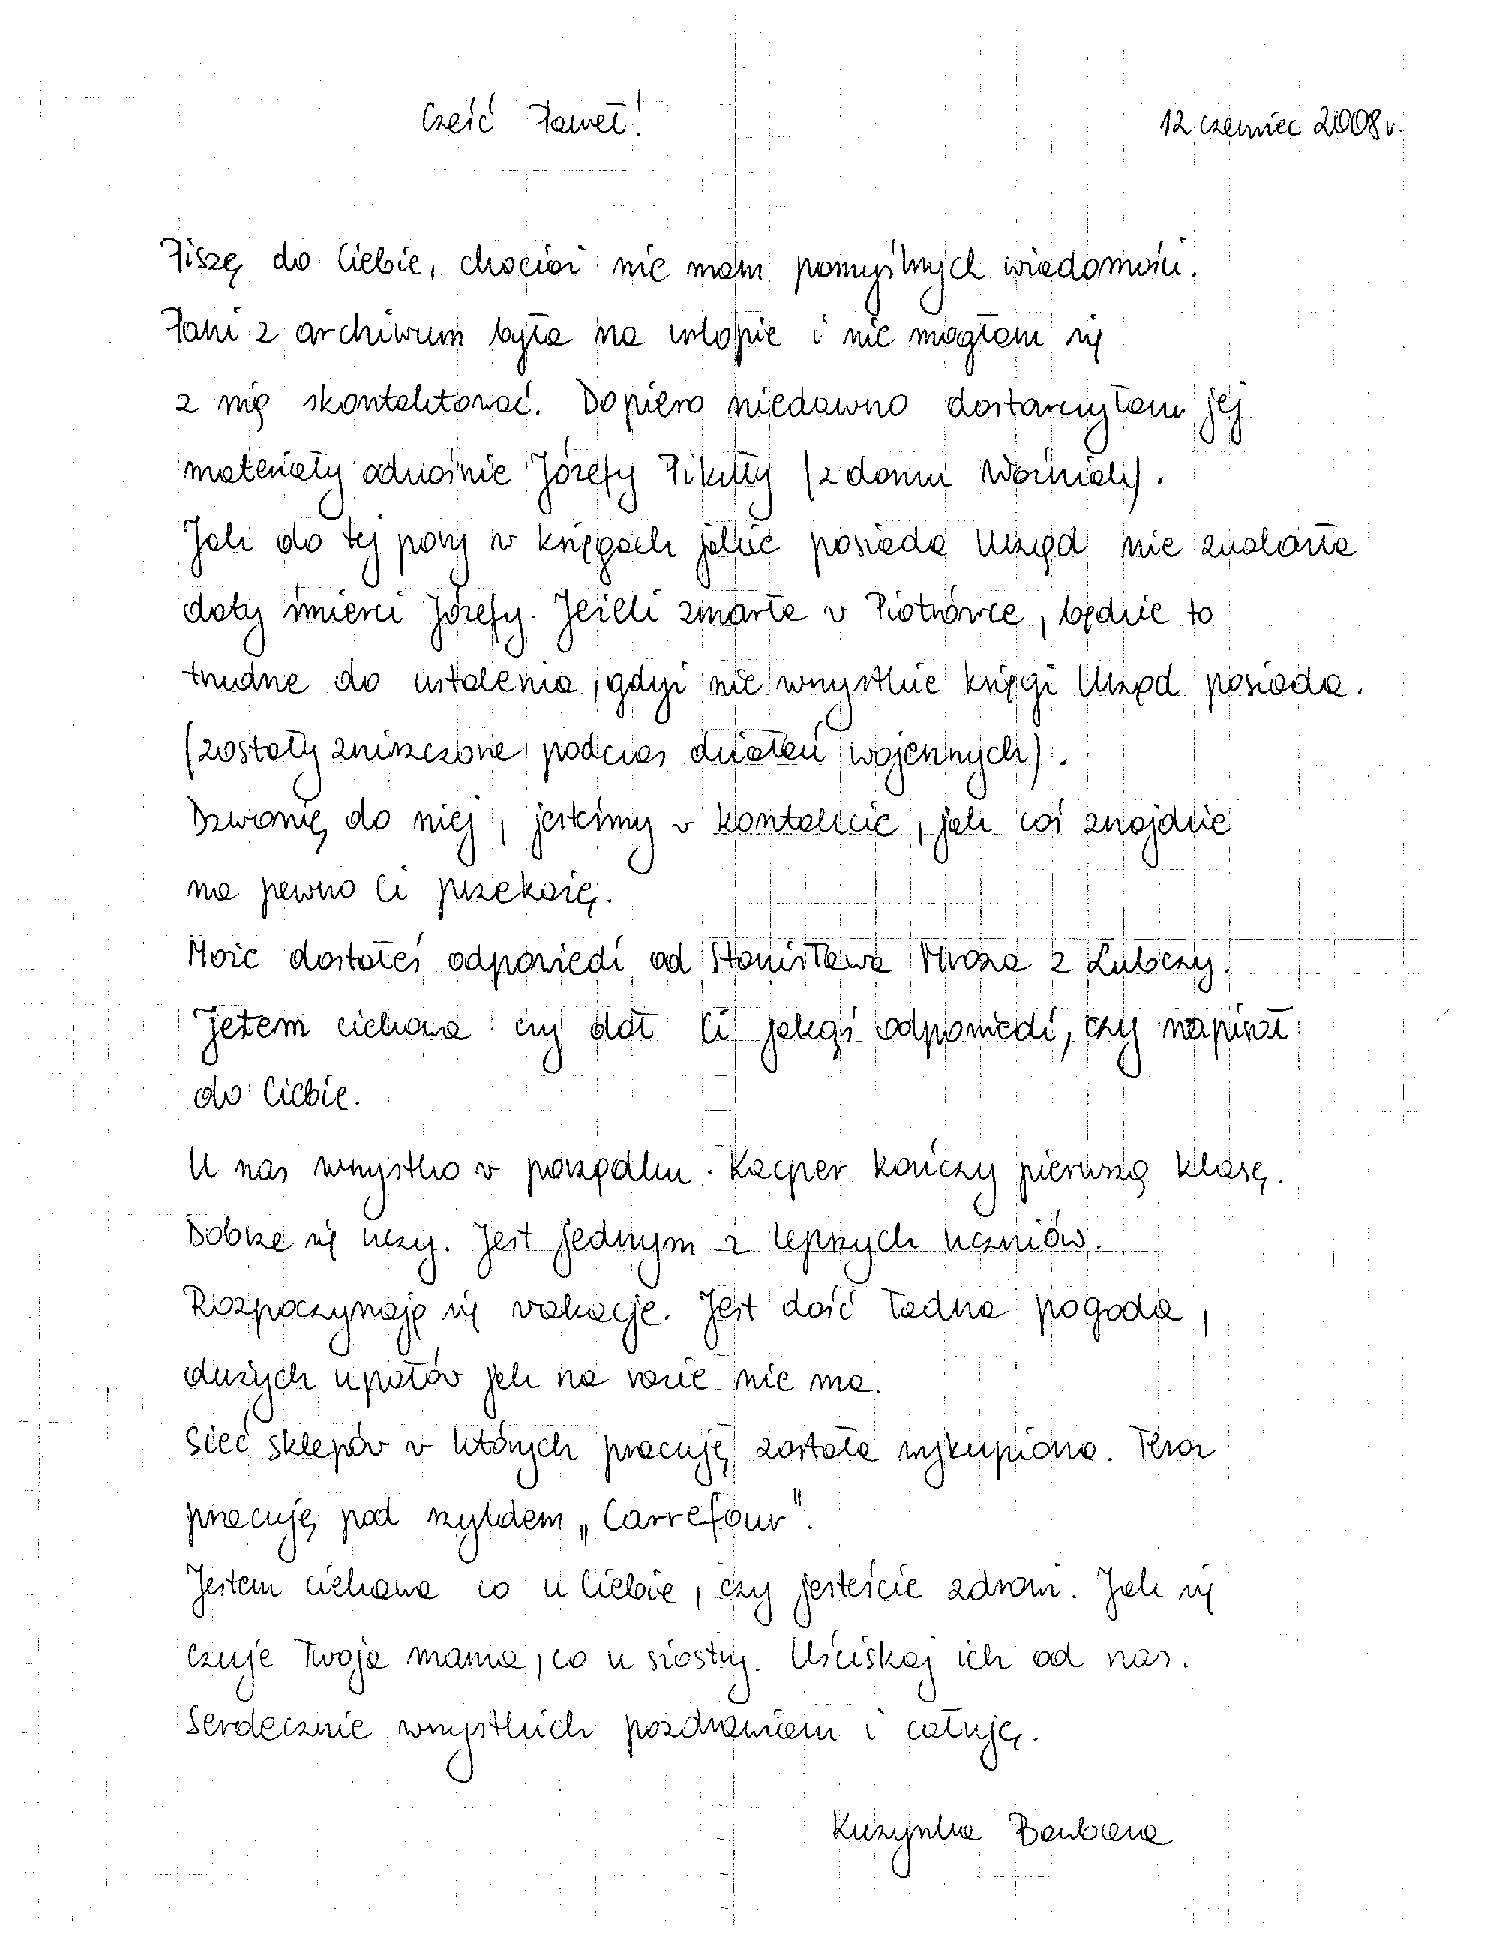 Cześć Paweł!
12 czerwiec 2008 r.
Piszę do Ciebie, chociaż nie mam pomyślnych wiadomości.
Pani z archiwum była na urlopie i nie mogłam się
z nią skontaktować. Dopiero niedawno dostarczyłam jej
materiały odnośnie Józefy Pikuły (z domu Woźniak).
Jak do tej pory w księgach jakie posiada Urząd nie znalazła
daty śmierci Józefy. Jeżeli zmarła w Piotrówce, będzie to
trudne do ustalenia, gdyż nie wszystkie księgi Urząd posiada.
(zostały zniszczone podczas działań wojennych).
Dzwonię do niej, jesteśmy w kontakcie, jak coś znajdzie
na pewno Ci przekażę.
Może dostałeś odpowiedź od Stanisława Mroza z Lubczy.
Jetem ciekawa czy dał Ci jakąś odpowiedź, czy napisał
do Ciebie.
U nas wszystko w porządku. Kacper kończy pierwszą klasę.
Dobrze się uczy. Jest jednym z lepszych uczniów.
Rozpoczynają się wakacje. Jest dość ładna pogoda,
dużych upałów jak na razie nie ma.
Sieć sklepów w których pracuję została wykupiona. Teraz
pracuję pod szyldem „Carrefour".
Jestem ciekawa co u Ciebie, czy jesteście zdrowi. Jak się
czuje Twoja mama, co u siostry. Uściskaj ich od nas.
Serdecznie wszystkich pozdrawiam i całuję.
Kuzynka Barbara